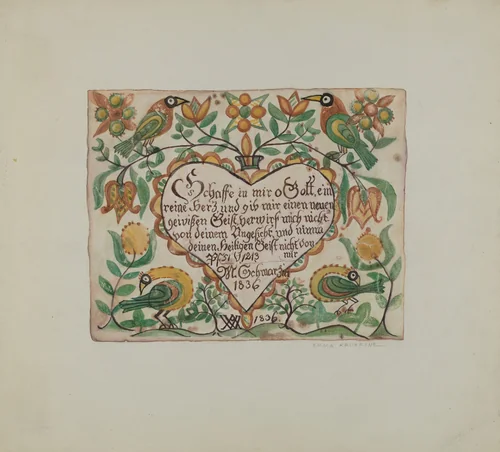 Schaffe in mir o Gott, ein
reine Herz, und gib mir einen neuen
gewißen Geist, verwirf mich nicht
von deinem Angesicht, und nim̅
deinen Heiligen Geist nicht von
mir
1836
1836.